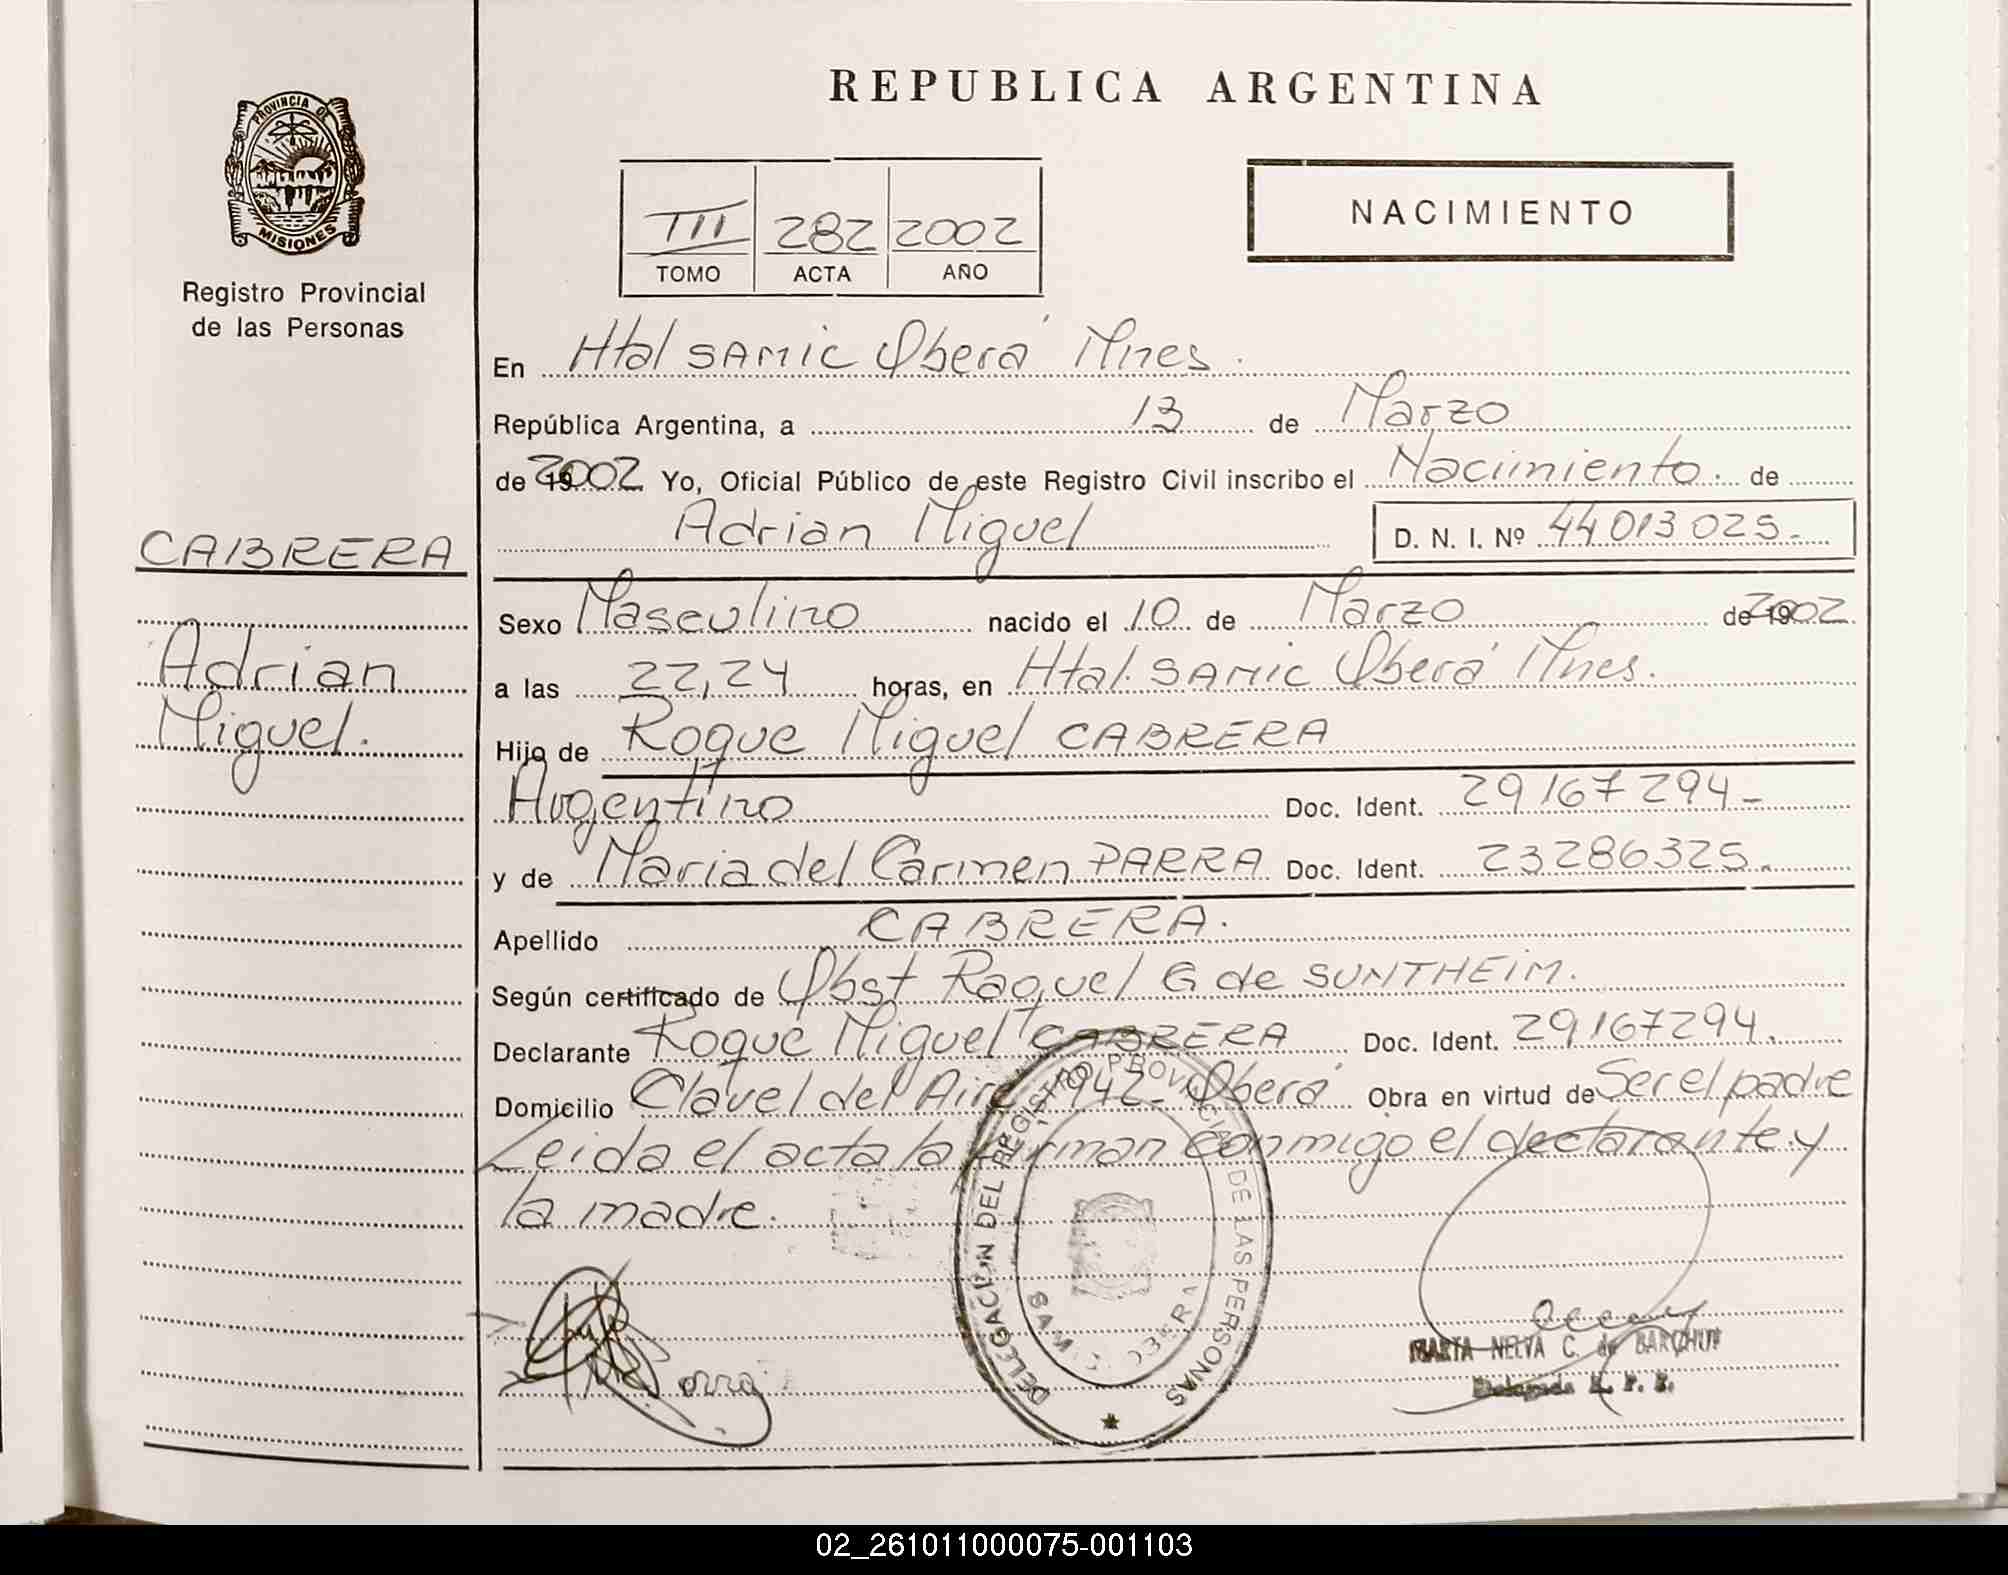 PROVINCIA DE
MISIONES
Registro Provincial
de las Personas
CABRERA
Adrian
Miguel.
REPUBLICA ARGENTINA
III 282 2002
TOMO ACTA AÑO
NACIMIENTO
En Htal SAMIC Oberá Mnes.
República Argentina, a 13 de Marzo
de 2002 Yo, Oficial Público de este Registro Civil inscribo el Nacimiento. de
Adrian Miguel D. N. I. Nº 44 013 025.-
Sexo Masculino nacido el 10 de Marzo de 2002
a las 22,24 horas, en Htal. SAMIC Oberá Mnes.
Hijo de Roque Miguel CABRERA
Argentino Doc. Ident. 29 167 294-
y de Maria del Carmen PARRA Doc. Ident. 23286325.-
Apellido CABRERA.
Según certificado de Obst Raquel G de SUNTHEIM.
Declarante Roque Miguel CABRERA Doc. Ident. 29167294.
Domicilio Clavel del Aire 1942- Oberá Obra en virtud de Ser el padre
Leida el acta la firman conmigo el declarante y
la madre.
DELEGACION DEL REGISTRO PROVINCIAL DE LAS PERSONAS
MARTA NELVA C. de
Delegada R. P. P.
02_261011000075-001103